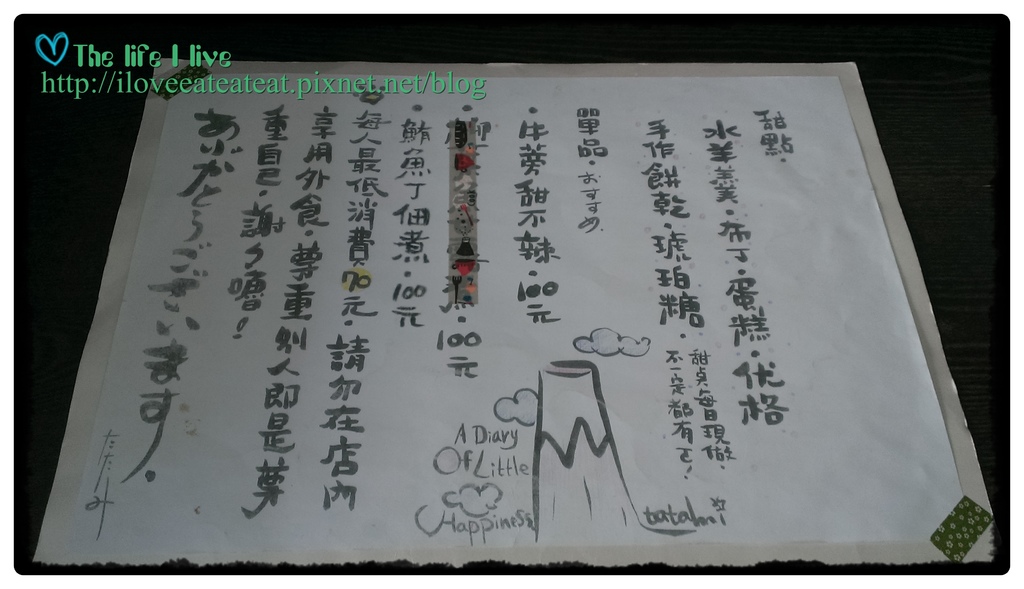 The life I live
http://iloveeateateat.pixnet.net/blog
甜點.
水羊羹.布丁.蛋糕.优格
手作餅乾.琥珀糖.
甜点每日現做.
不一定都有ㄛ!
單品.おすすめ.
.牛蒡甜不辣.100元
.100元
.鮪魚丁佃煮.100元
每人最低消費70元.請勿在店內
享用外食.尊重別人即是尊
重自己.謝々嚕!
ありがとうございます.
たたみ
A Diary
Of Little
Happiness
tatami